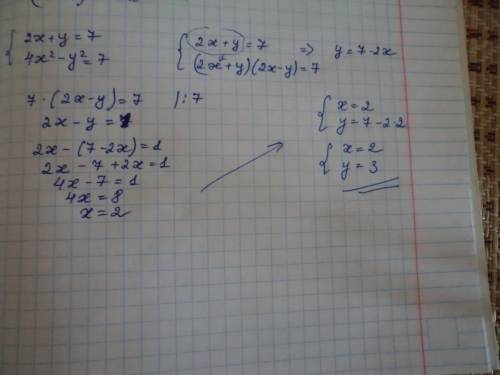 { 2x+y=7
4x²-y²=7
{ 2x+y=7 => y=7-2x
(2x+y)(2x-y)=7
7·(2x-y)=7 |:7
2x-y=1
2x-(7-2x)=1
2x-7+2x=1
4x-7=1
4x=8
x=2
{ x=2
y=7-2·2
{ x=2
y=3